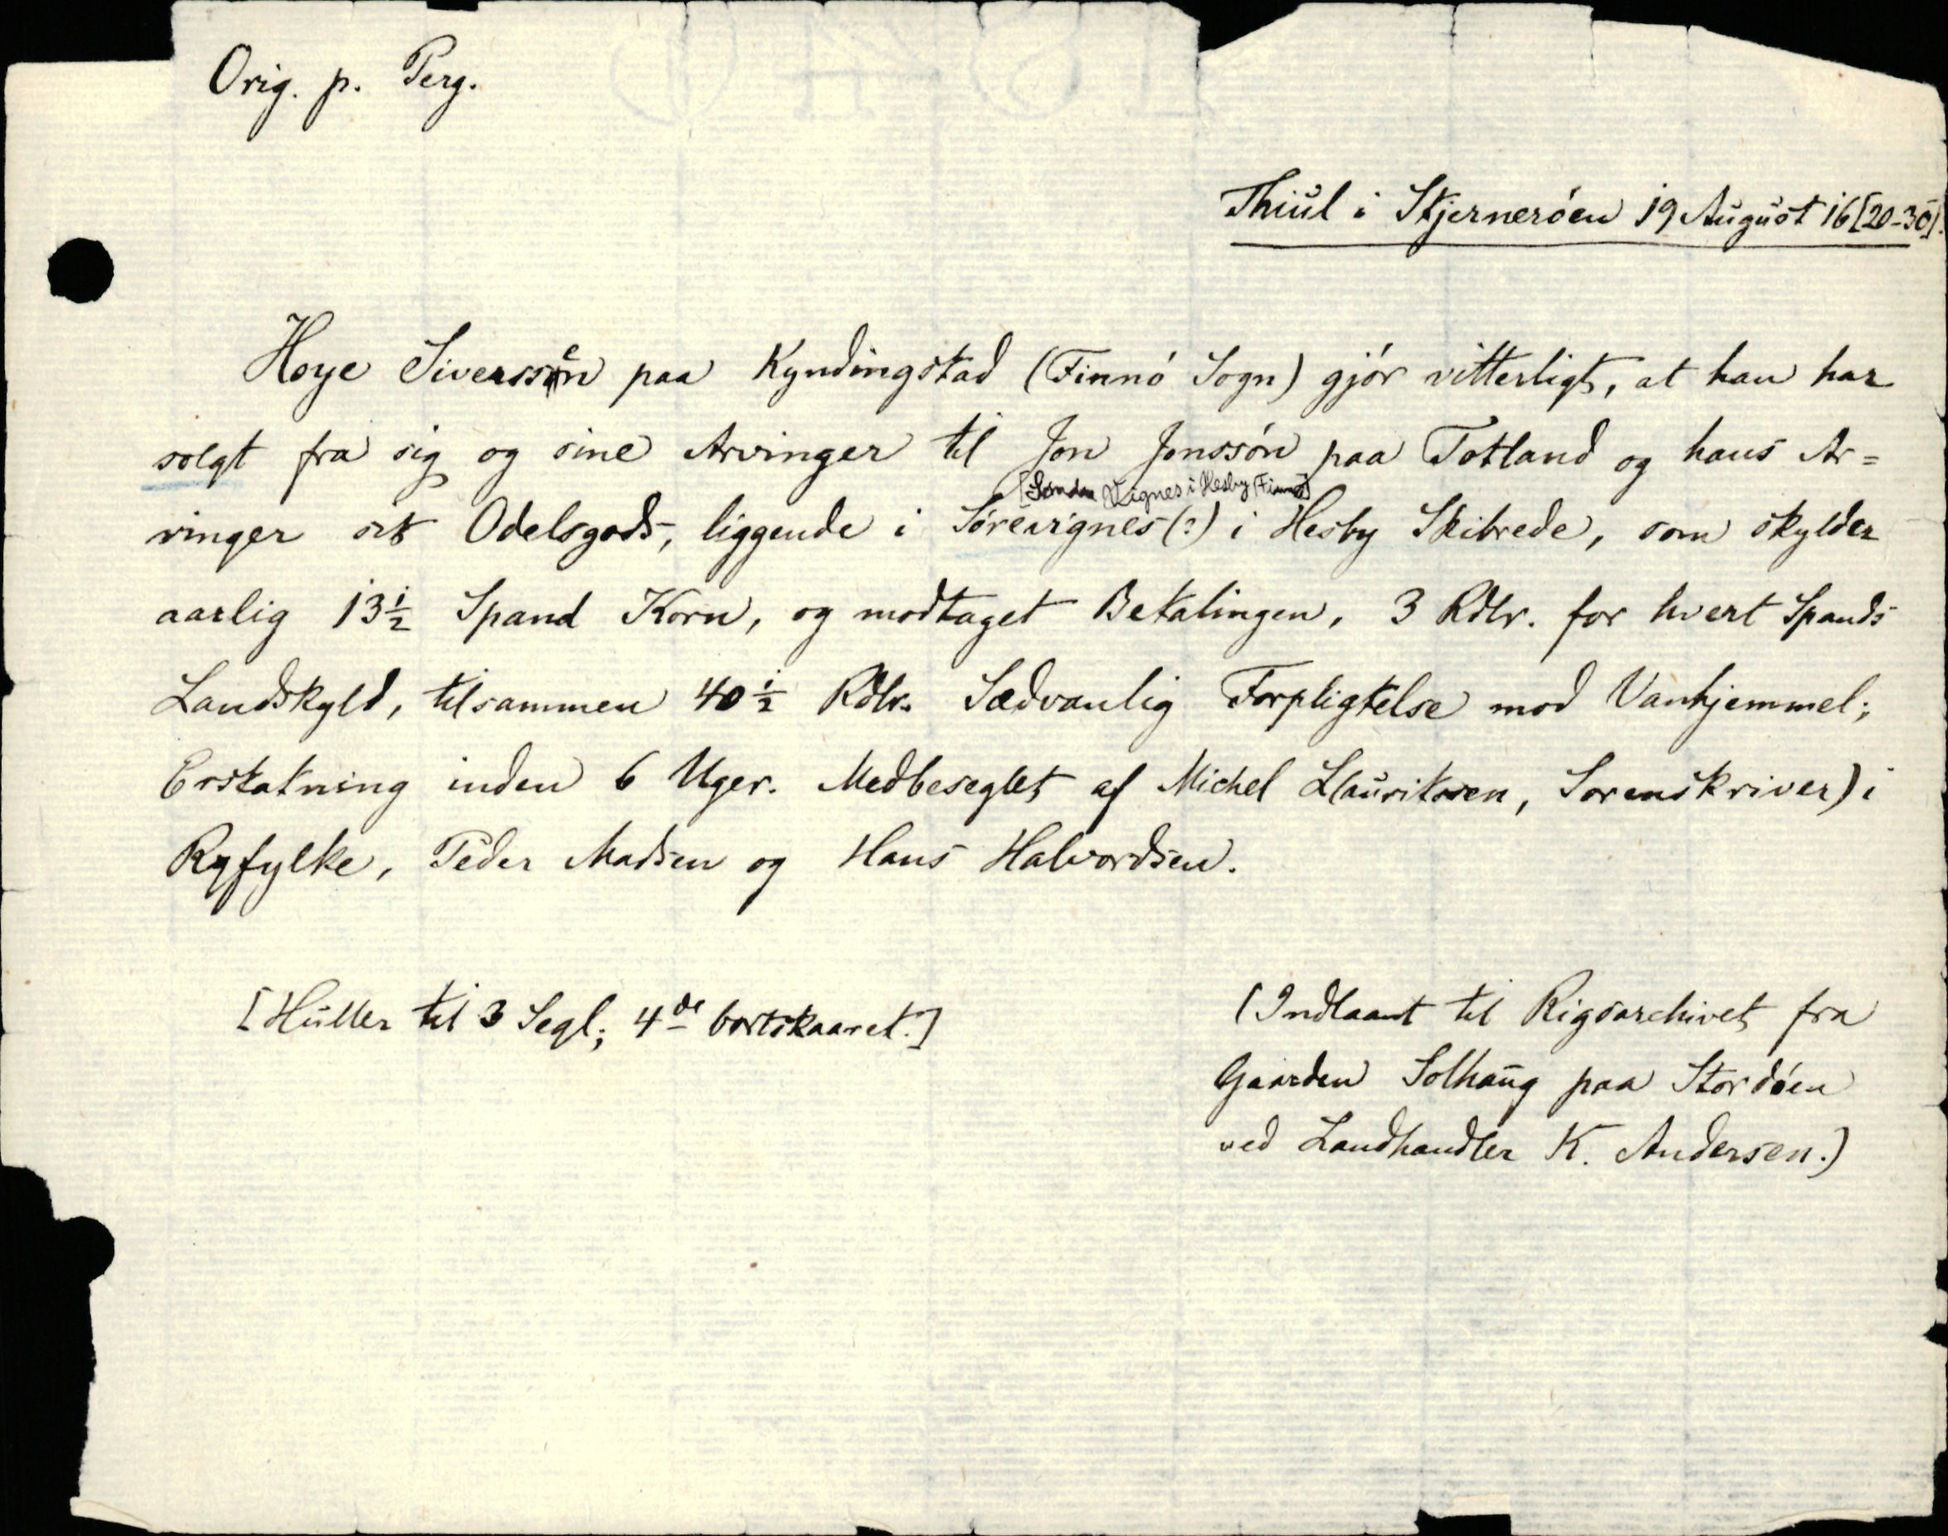 Orig. p. Perg.
Thiul i Stjernerøen 19 August 16[20-30].
Hoye Siverssøn paa Kyndingstad (Finnø Sogn) gjør vitterligt, at han har
solgt fra sig og sine Arvinger til Jon Jonssøn paa Totland og hans Ar=
[Søndre Vignes i Hesby (Finnø)]
vinger sit Odelsgods, liggende i Sørevignes (?) i Hesby Skibrede, som skylder
aarlig 13½ Spand Korn, og modtaget Betalingen, 3 Rdlr. for hvert Spands
Landskyld, tilsammen 40½ Rdlr. Sædvanlig Forpligtelse mod Vanhjemmel;
Erstatning inden 6 Uger. Medbeseglet af Michel L(auritssen, Sorenskriver) i
Ryfylke, Peder Madsen og Hans Halvordsen.
[Huller til 3 Segl; 4de bortskaaret.]
(Indlaant til Rigsarchivet fra
Gaarden Solhaug paa Stordøen
ved Landhandler K. Andersen.)